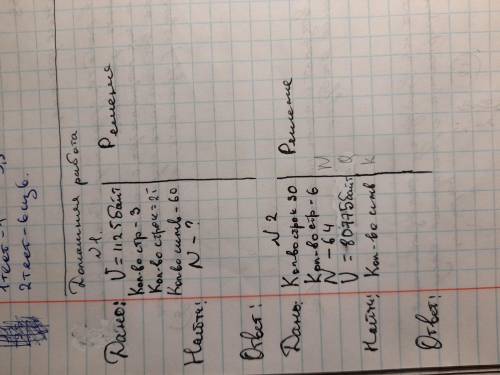 2 тест - 6 изб.
Домашняя работа
№1
Дано:
V = 1125 байт
Кол-во стр = 3
Кол-во строк = 25
Кол-во симв = 60
Найти:
N - ?
Решение
Ответ:
№2
Дано:
Кол-во строк 30
Кол-во стр - 6
N - 64
V = 80775 байт
Найти:
Кол-во симв
Решение
N
Q
K
Ответ: